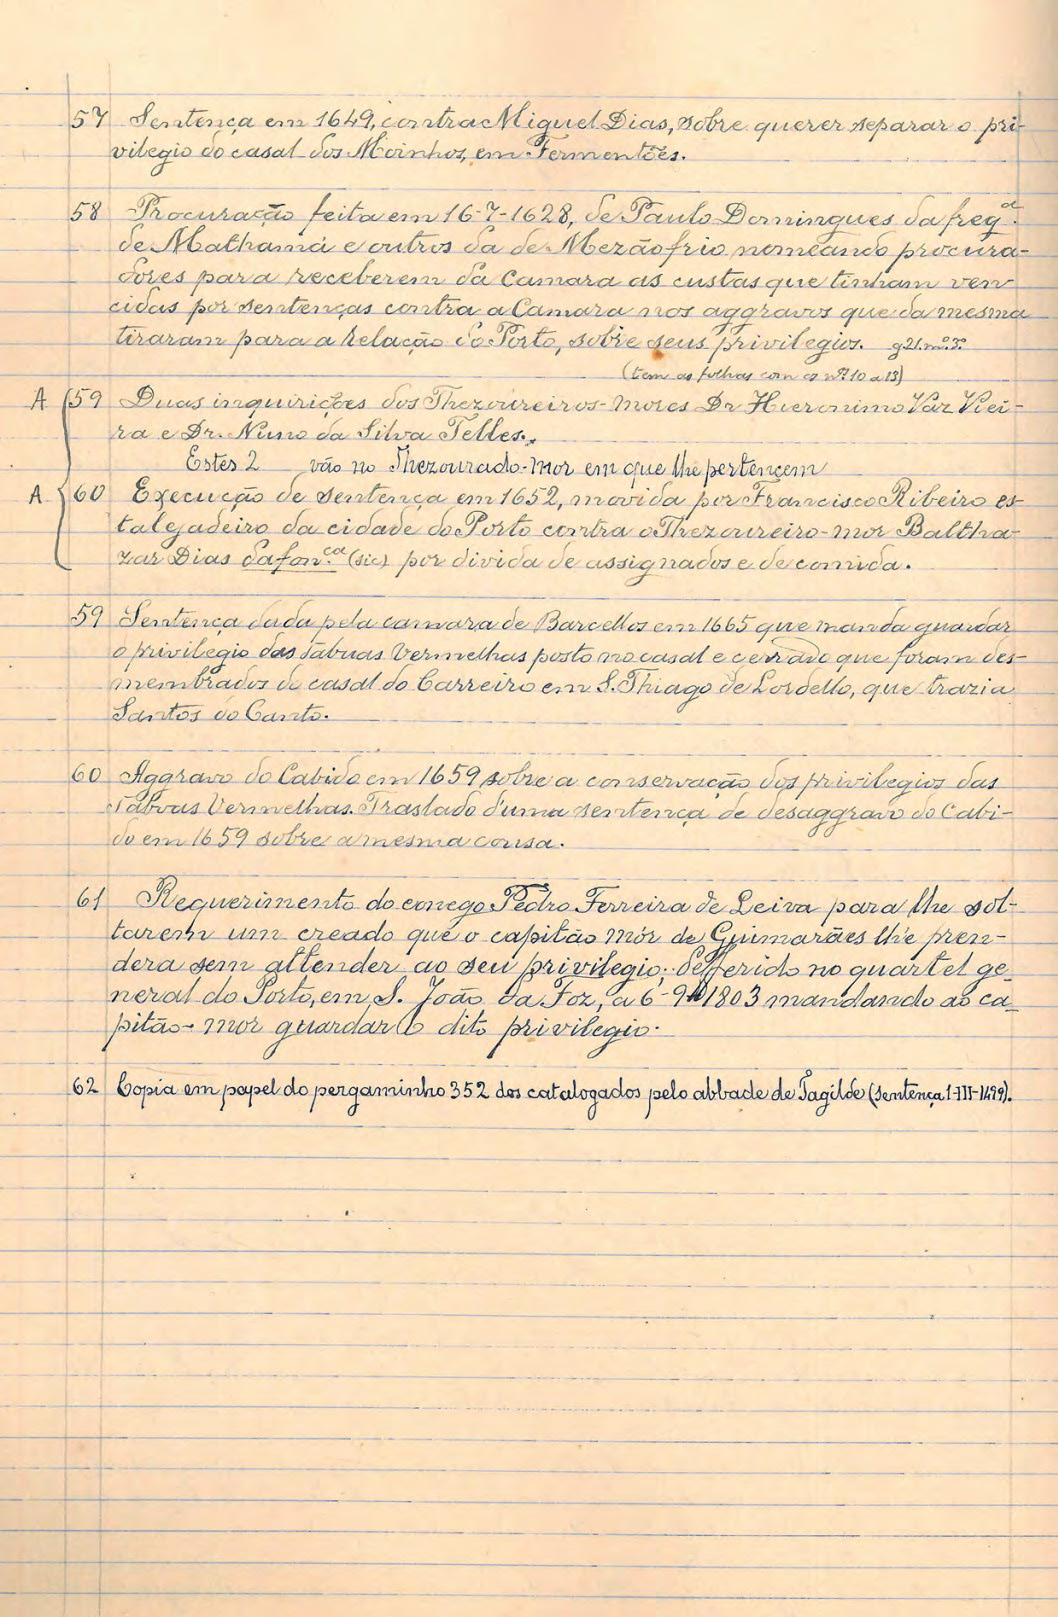 57 Sentença em 1649, contra Miguel Dias, sobre querer separar o pri-
vilegio do casal dos Moinhos, em Fermentões.
58 Procuração feita em 16-7-1628, de Paulo Domingues da freg.ª
de Mathamá e outros da de Mezãofrio nomeando procura-
dores para receberem da Camara as custas que tinham ven
cidas por sentenças contra a Camara nos aggravos que da mesma
tiraram para a Relação do Porto, sobre seus privilegios. g 21. m.º 3º
(tem as folhas com os nºs 10 a 13)
A 59 Duas inquirições dos Thezoureiros-mores Dr Hieronimo Vaz Viei-
ra e Dr. Nuno da Silva Telles.
Estes 2 vão no Thezourado-mor em que lhe pertençem
A 60 Execução de sentença em 1652, movida por Francisco Ribeiro es-
talejadeiro da cidade do Porto contra o Thezoureiro-mor Baltha-
zar Dias dafon.ca (sic) por divida de assignados e de comida.
59 Sentença dada pela camara de Barcellos em 1665 que manda guardar
o privilegio das Tabuas Vermelhas posto no casal e cerrado que foram des-
membrados do casal do Carreiro em S. Thiago de Lordello, que trazia
Santos do Canto.
60 Aggravo do Cabido em 1659 sobre a conservação dos privilegios das
Tabuas Vermelhas. Traslado d'uma sentença de desaggravo do Cabi-
do em 1659 sobre a mesma cousa.
61 Requerimento do conego Pedro Ferreira de Leiva para lhe sol-
tarem um creado que o capitão mór de Guimarães lhe pren-
dera sem attender ao seu privilegio; defferido no quartel ge-
neral do Porto, em S. João da Foz, a 6-9-1803 mandando ao ca-
pitão-mor guardar o dito privilegio.
62 Copia em papel do pergaminho 352 dos catalogados pelo abbade de Tagilde (sentença 1-III-1499).